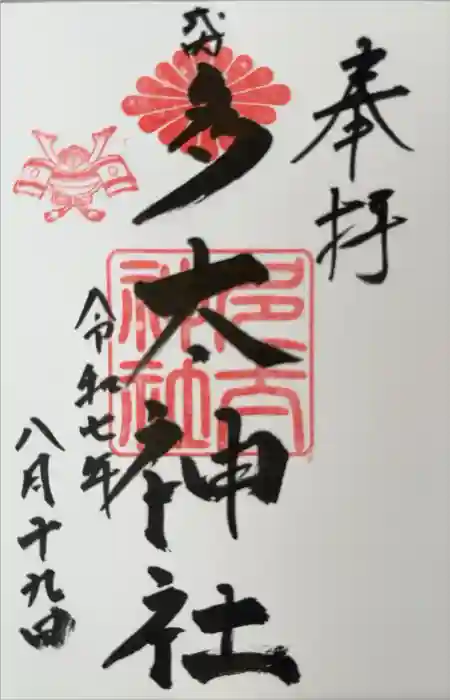 奉拝
式内
多太神社
多太
神社
令和七年
八月十九日